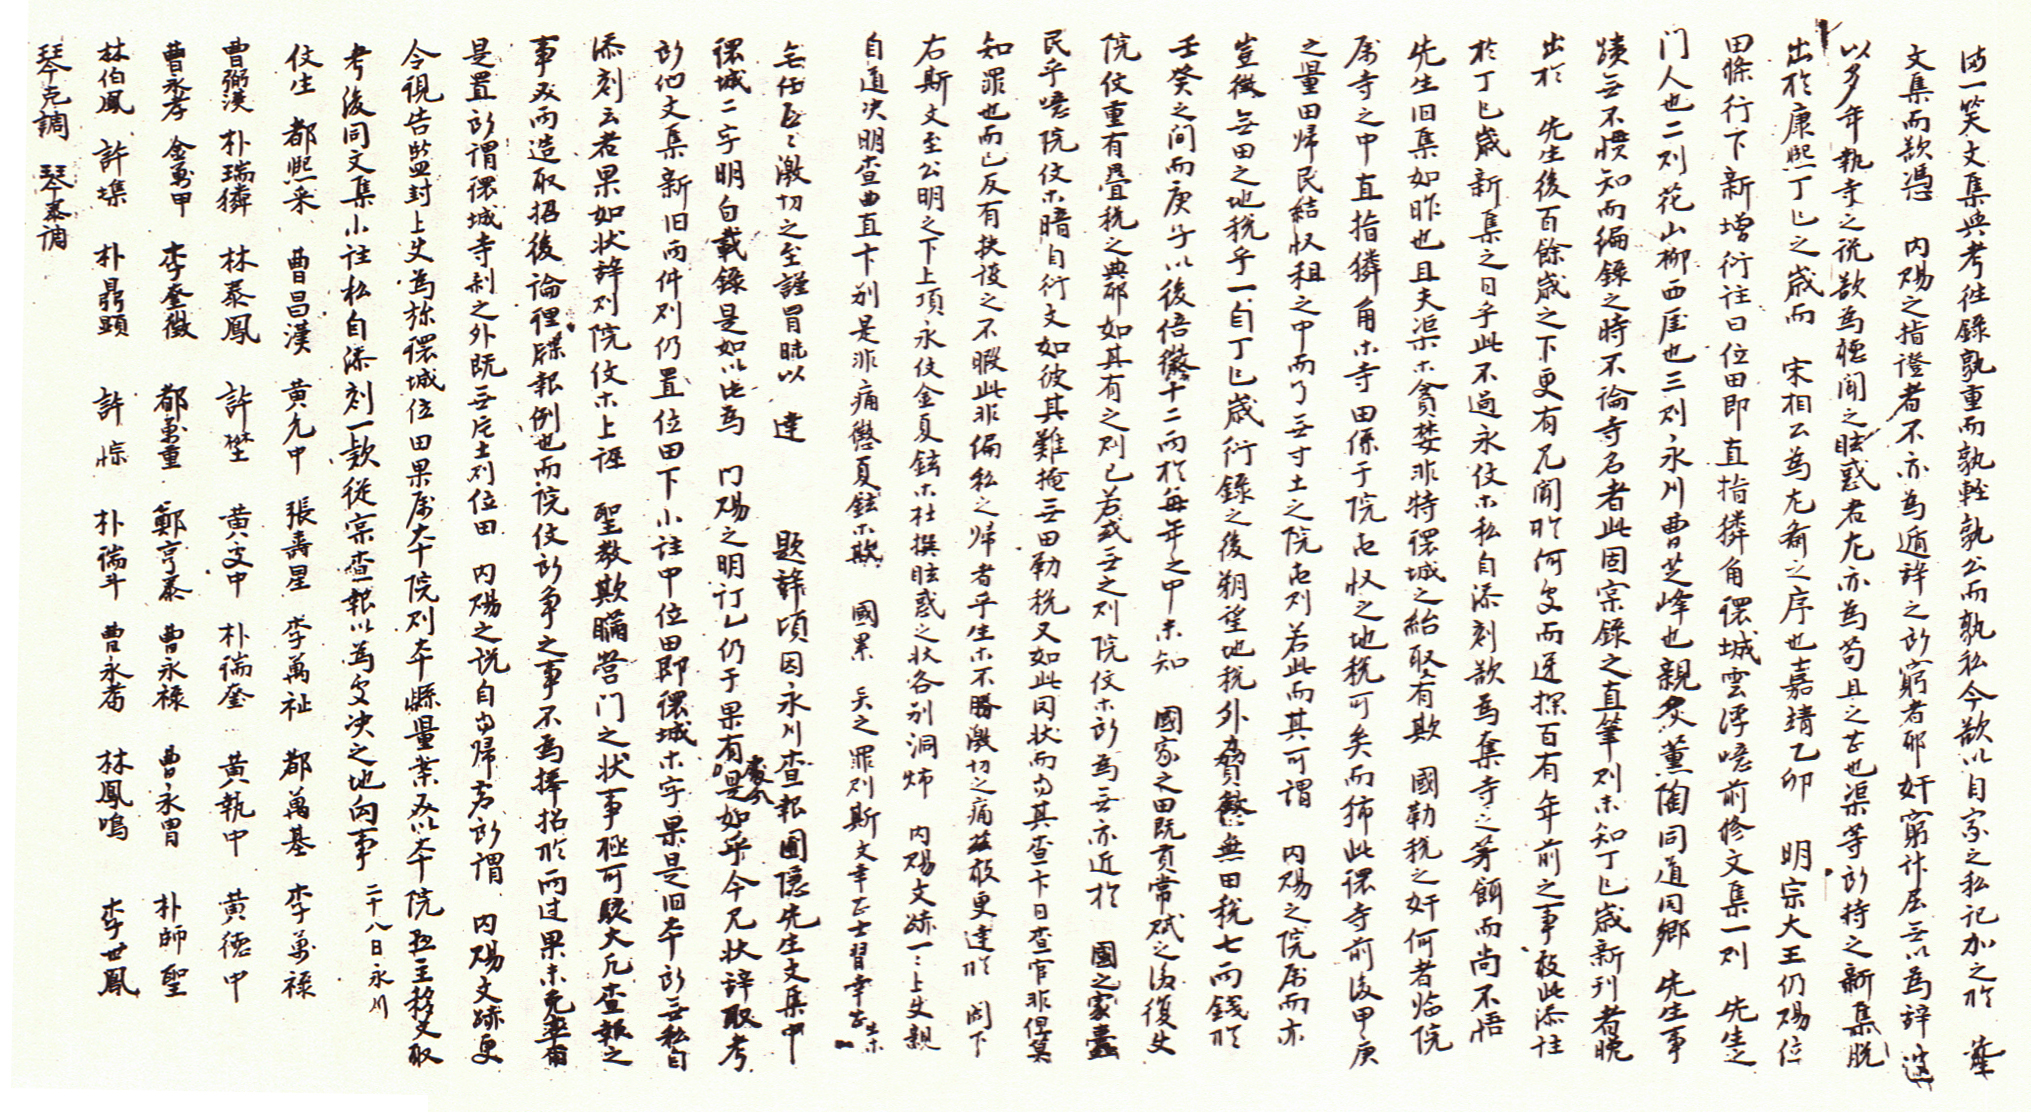 一笑文集與考往錄孰重而孰輕孰公而孰私今欲以自家之私記加之於
文集而欲憑 內賜之指證者不亦爲遁辞之所窮者耶奸窮計屈無以爲辞
以多年執寺之說欲爲聽聞之眩惑者尤亦爲苟且之甚也渠等所恃之新集
出於康熙丁巳之歲而 宋相公爲尤齋之序也嘉靖乙卯 明宗大王仍賜位
田條行下新增衍註曰位田即直指獜角環城雲浮噫前修文集一則 先生之
门人也二則花山柳西厓也三則永川曹芝峰也親炙薰陶同道同鄉 先生事
蹟無不慣知而編錄之時不論寺名者此固宲錄之直筆則未知丁巳歲新刊者晩
出於 先生後百餘歲之下更有見聞於何處而逆探百有年前之事敢此添註
於丁巳歲新集之日乎此不過永伩木私自添刻欲爲奪寺之芳餌而尚不悟
先生旧集如昨也且夫渠木貪婪非特環城之紿取有欺 國勒稅之奸何者臨院
属寺之中直指獜角木寺田係于院而收之地稅可矣而獨此環寺前後甲庚
之量田歸民結收租之中而了無寸土之院而則若此而其可謂 內賜之院属而亦
豈徵無田之地稅乎一自丁巳歲衍錄之後朔望地稅外 無田稅七而錢於
壬癸之间而庚子以後倍徵十二而於每年之中未知 國家之田既貢常賦之後復使
院伩重有疊稅之典耶如其有之則已若或無之則院伩木所爲無亦近於 國之家蠹
民乎噫院伩木暗自衍文如彼其難掩無田勒稅又如此同狀而當其查卞日查官非但莫
知罪也而已反有扶護之不暇此非偏私之歸者乎生木不勝激切之痛玆敢更達於 閤下
右斯文至公明之下上項永伩金夏鉉木杜撰眩惑之狀各別洞燭 內賜文跡一一上史親
自道决明查曲直卞別是非痛懲夏鉉木欺 國累 先之罪則斯文幸甚士習幸甚生木
無任 激切之至謹冒昧以 達 題辞頃因永川查報圃隱先生文集中
環城二字明白載錄是如以此爲 门賜之明訂乙仍于果有處分是如乎今見狀辞取考
所納文集新旧两件則仍置位田下小註中位田即環城木字果是旧夲所無私自
添刻云者果如狀辞則院伩木上誣 聖敎欺瞞营门之狀事極可駭大凡查報之
事 而造取招後論理牒報例也而院伩所爭之事不爲捧招於两过果未免率甫
是置所谓環城寺刹之外既無尺土則位田 內賜之說自當歸虛所謂 內賜文跡更
令視告監封上史爲旀環城位田果属夲院則夲縣量案及以夲院 主移文取
考後同文集小註私自添刻一款從宲查報以爲處决之地向事 二十八日永川
伩生 都熙采 曹昌漢 黄允中 張壽星 李萬祉 都萬基 李萬禄
曹弼漢 朴瑞獜 林泰鳳 許墪 黄文中 朴瑞奎 黄執中 黄德中
曹永孝 金萬甲 李奎徵 都萬重 鄭亨泰 曹永禄 曹永胄 朴師聖
林伯鳳 許㙫 朴鼎顕 許悰 朴瑞斗 曹永蓍 林鳳鳴 李世鳳
琴克調 琴泰调